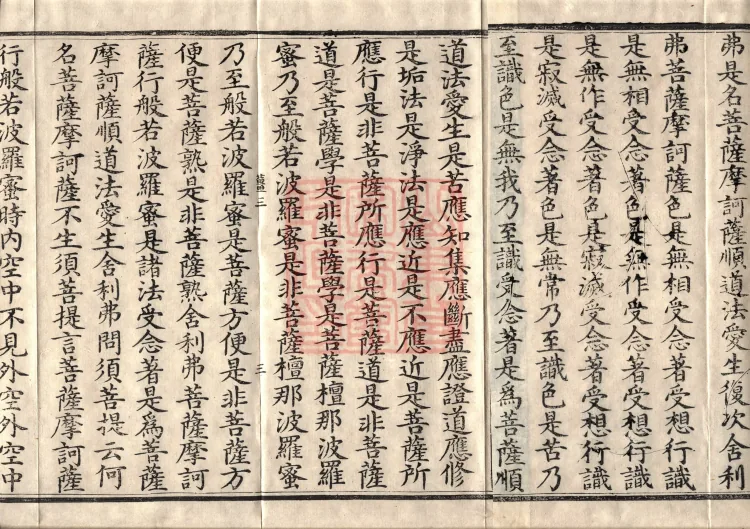 弗是名菩薩摩訶薩順道法愛生復次舍利
弗菩薩摩訶薩色是無相受念著受想行識
是無相受念著色是無作受念著受想行識
是無作受念著色是寂滅受念著受想行識
是寂滅受念著色是無常乃至識色是苦乃
至識色是無我乃至識受念著是為菩薩順
道法愛生是苦應知集應斷盡應證道應修
是垢法是淨法是應近是不應近是菩薩所
應行是非菩薩所應行是菩薩道是非菩薩
道是菩薩學是非菩薩學是菩薩檀那波羅
蜜乃至般若波羅蜜是非菩薩檀那波羅蜜
三
三
乃至般若波羅蜜是菩薩方便是非菩薩方
便是菩薩熟是非菩薩熟舍利弗菩薩摩訶
薩行般若波羅蜜是諸法受念著是為菩薩
摩訶薩順道法愛生舍利弗問須菩提云何
名菩薩摩訶薩不生須菩提言菩薩摩訶薩
行般若波羅蜜時內空中不見外空外空中